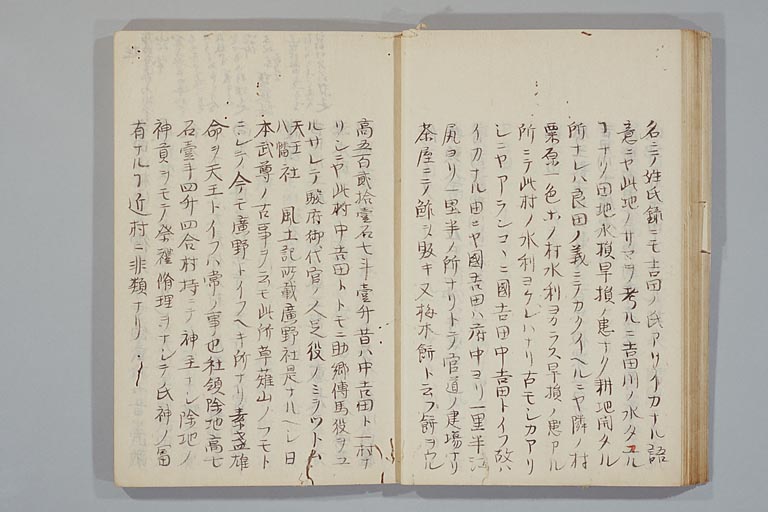 名ニテ姓氏録ニモ吉田ノ氏アリイカナル語
意ニヤ此地ノサマヲ考ルニ吉田川ノ水タユル
ヿナクノ田地水損旱損ノ患ナク耕地開タル
所ナレハ良田ノ義ニテカクイヘルニヤ隣村
栗原一色ホノ村水利ヨカラス旱損ノ患アル
所ニテ此村ノ水利ヨケレハナリ古モシカアリ
シニヤアランコヽニ國吉田中吉田トイフ故ハ
イカナル由ニヤ國吉田ハ府中ヨリ一里半江
尻ヨリ一里半ノ所ナリトテ官道ノ建場ナリ
茶屋ニテ鮓ヲ販キ又梅木餅ト云フ餅ヲウル
高五百貳拾壹石七斗壹升昔ハ中吉田ト一村ナ
リシニヤ此村中吉田トトモニ助郷傳馬役ヲユ
ルサレテ駿府御代官ノ人足役ノミヲツトム
天王八幡社 風土記所載廣野社是ナルヘシ日
本武尊ノ古事ヲ云モ此所草薙山ノフモト
ニシテ今モ廣野トイフヘキ所ナリ素盞雄
命ヲ天王トイフハ常ノ事也社領除地高七
石壹斗四升四合村持ニテ神主ナシ除地ノ
神貢ヲモテ祭禮脩理ヲナシテ氏神ノ富
有ナルヿ近村ニ非類ナリ